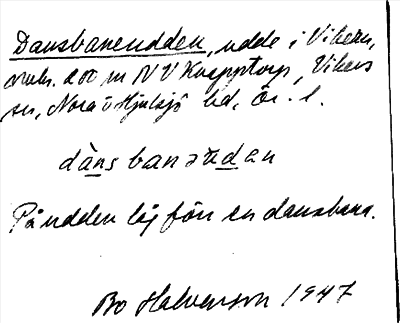 Dansbaneudden, udde i Vikern,
omkr. 200 m NV Knapptorp, Vikers
sn, Nora o Hjulsjö hd, Ör. l.
dàns banəùdan
På udden låg förr en dansbana.
Bo Halvorson 1947